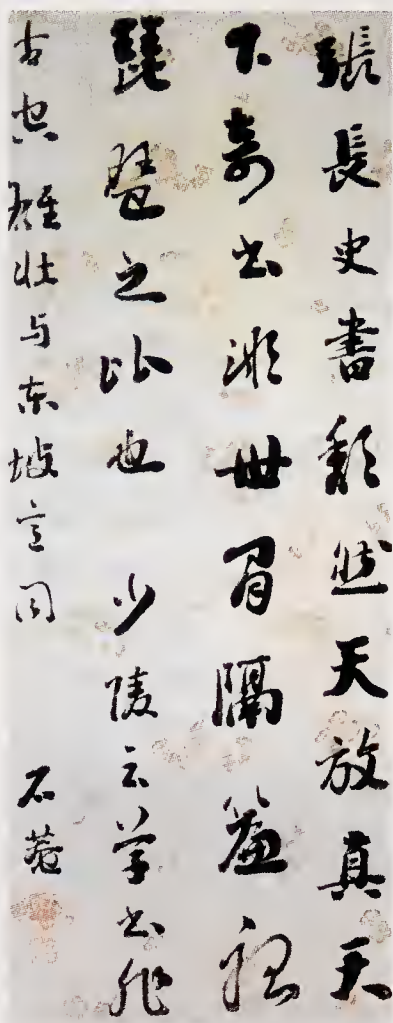 張長史書頹然天放真天
下奇書世間隔簾聽
琵琶之比也　少陵云草書非
古空雄壯与東坡言同
石菴